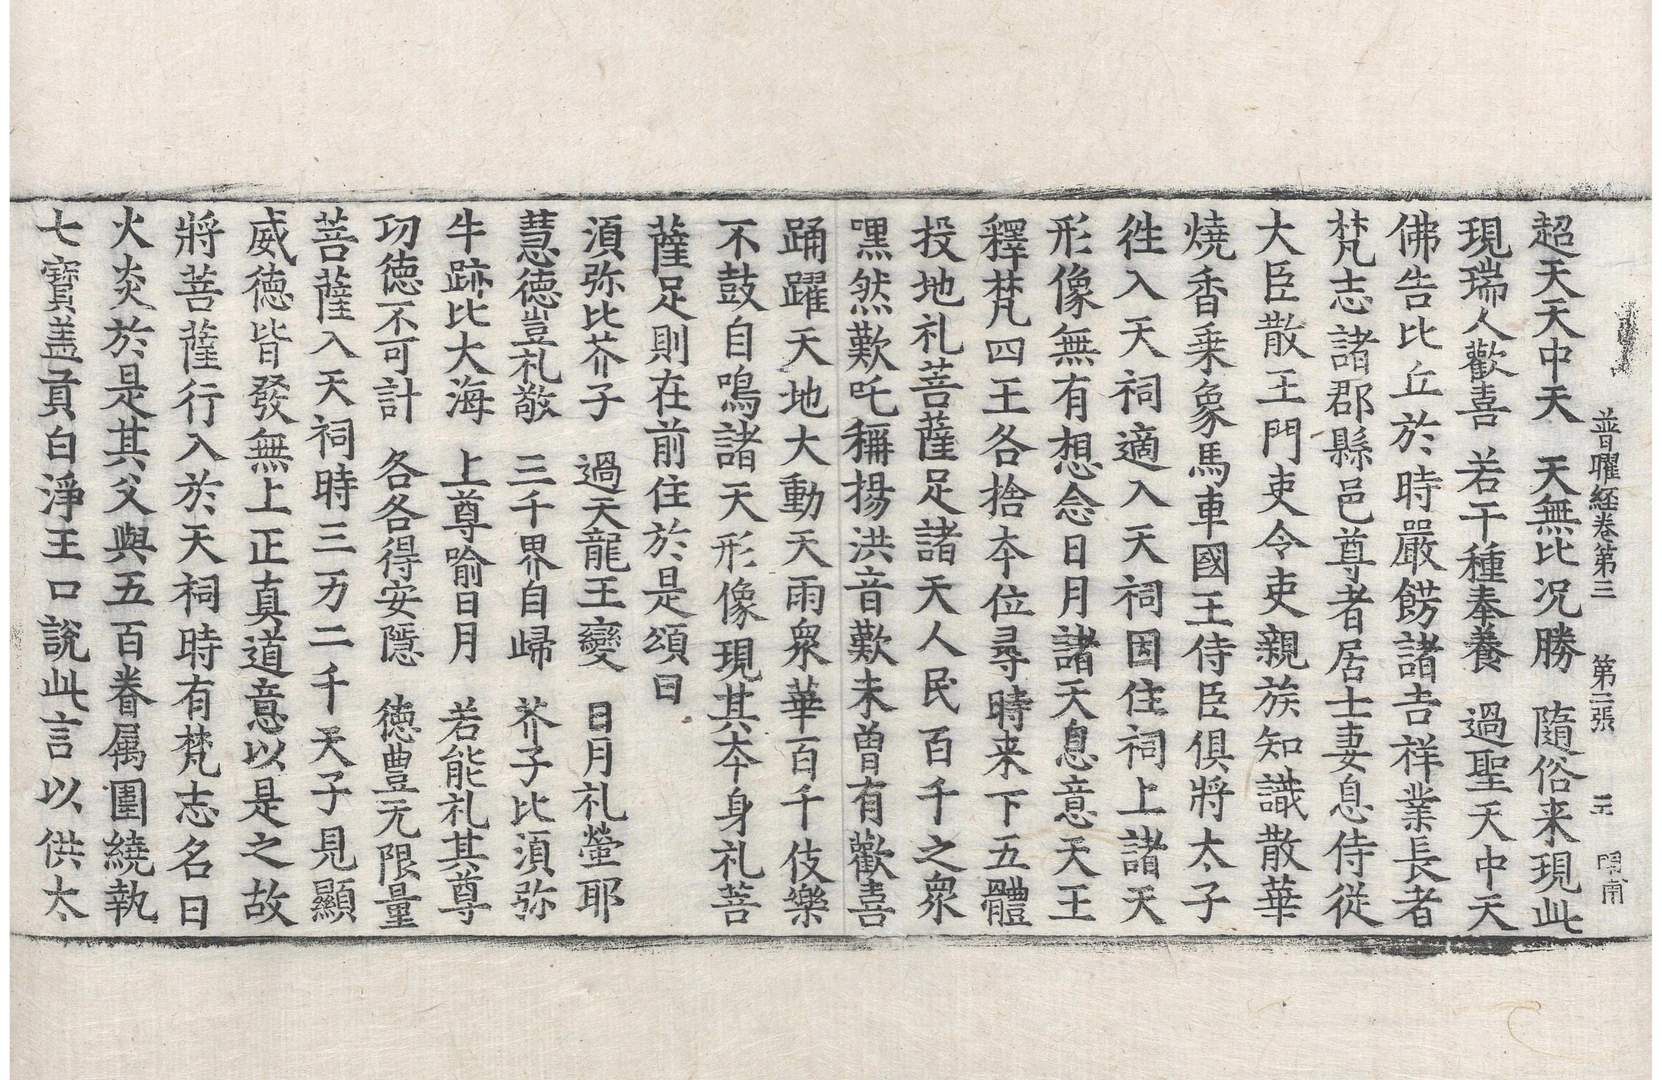 普曜経卷第三　第三張　㐧
超天天中天　天無比况勝　隨俗来現此
現瑞人歡喜　若干種奉養　過聖天中天
佛告比丘於時嚴餝諸吉祥業長者
梵志諸郡縣邑尊者居士妻息侍從
大臣散王門吏令吏親族知識散華
燒香乗象馬車國王侍臣俱將太子
徃入天祠適入天祠因住祠上諸天
形像無有想念日月諸天息意天王
釋梵四王各捨本位尋時来下五體
投地礼菩薩足諸天人民百千之衆
嘿然歎吒稱揚洪音歎未曾有歡喜
踊躍天地大動天雨衆華百千伎樂
不鼓自鳴諸天形像現其本身礼菩
薩足則在前住於是頌曰
湏弥比芥子　過天龍王變　日月礼螢耶
慧徳豈礼敬　三千界自歸　芥子比湏弥
牛跡比大海　上尊喻日月　若能礼其尊
功徳不可計　各各得安隱　徳豊无限量
菩薩入天祠時三万二千天子見顯
威徳皆發無上正真道意以是之故
將菩薩行入於天祠時有梵志名曰
火炎於是其父與五百眷属圍繞執
七寶盖貢白淨王口說此言以供太